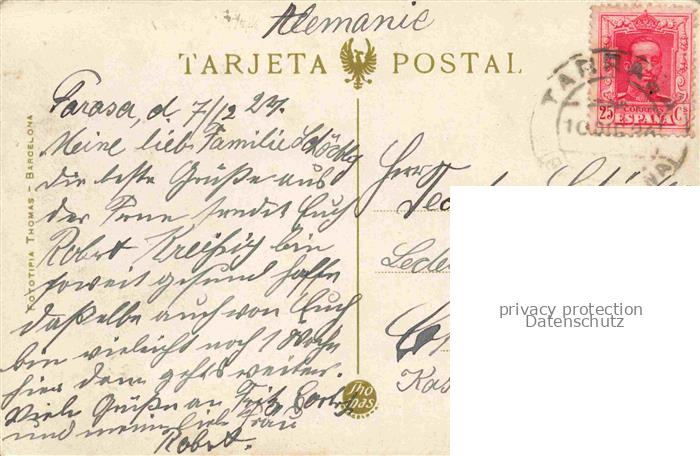 Alemanie
TARJETA POSTAL
25 CORREOS 25
ESPAÑA
TARRASA
FOTOTIPIA THOMAS - BARCELONA
Tarasa, d. 7/12 27.
Meine liebe Familie
die beste Grüße aus
der Ferne sendet Euch
Robert Kreißig bin
soweit gesund hoffe
daßelbe auch von Euch
bin vieleicht noch 1 Woche
hier dann gehts weiter.
Viele Grüße an Fritz
und meine liebe Frau
Robert.
Herr
Leder
Kas
Thomas
privacy protection
Datenschutz